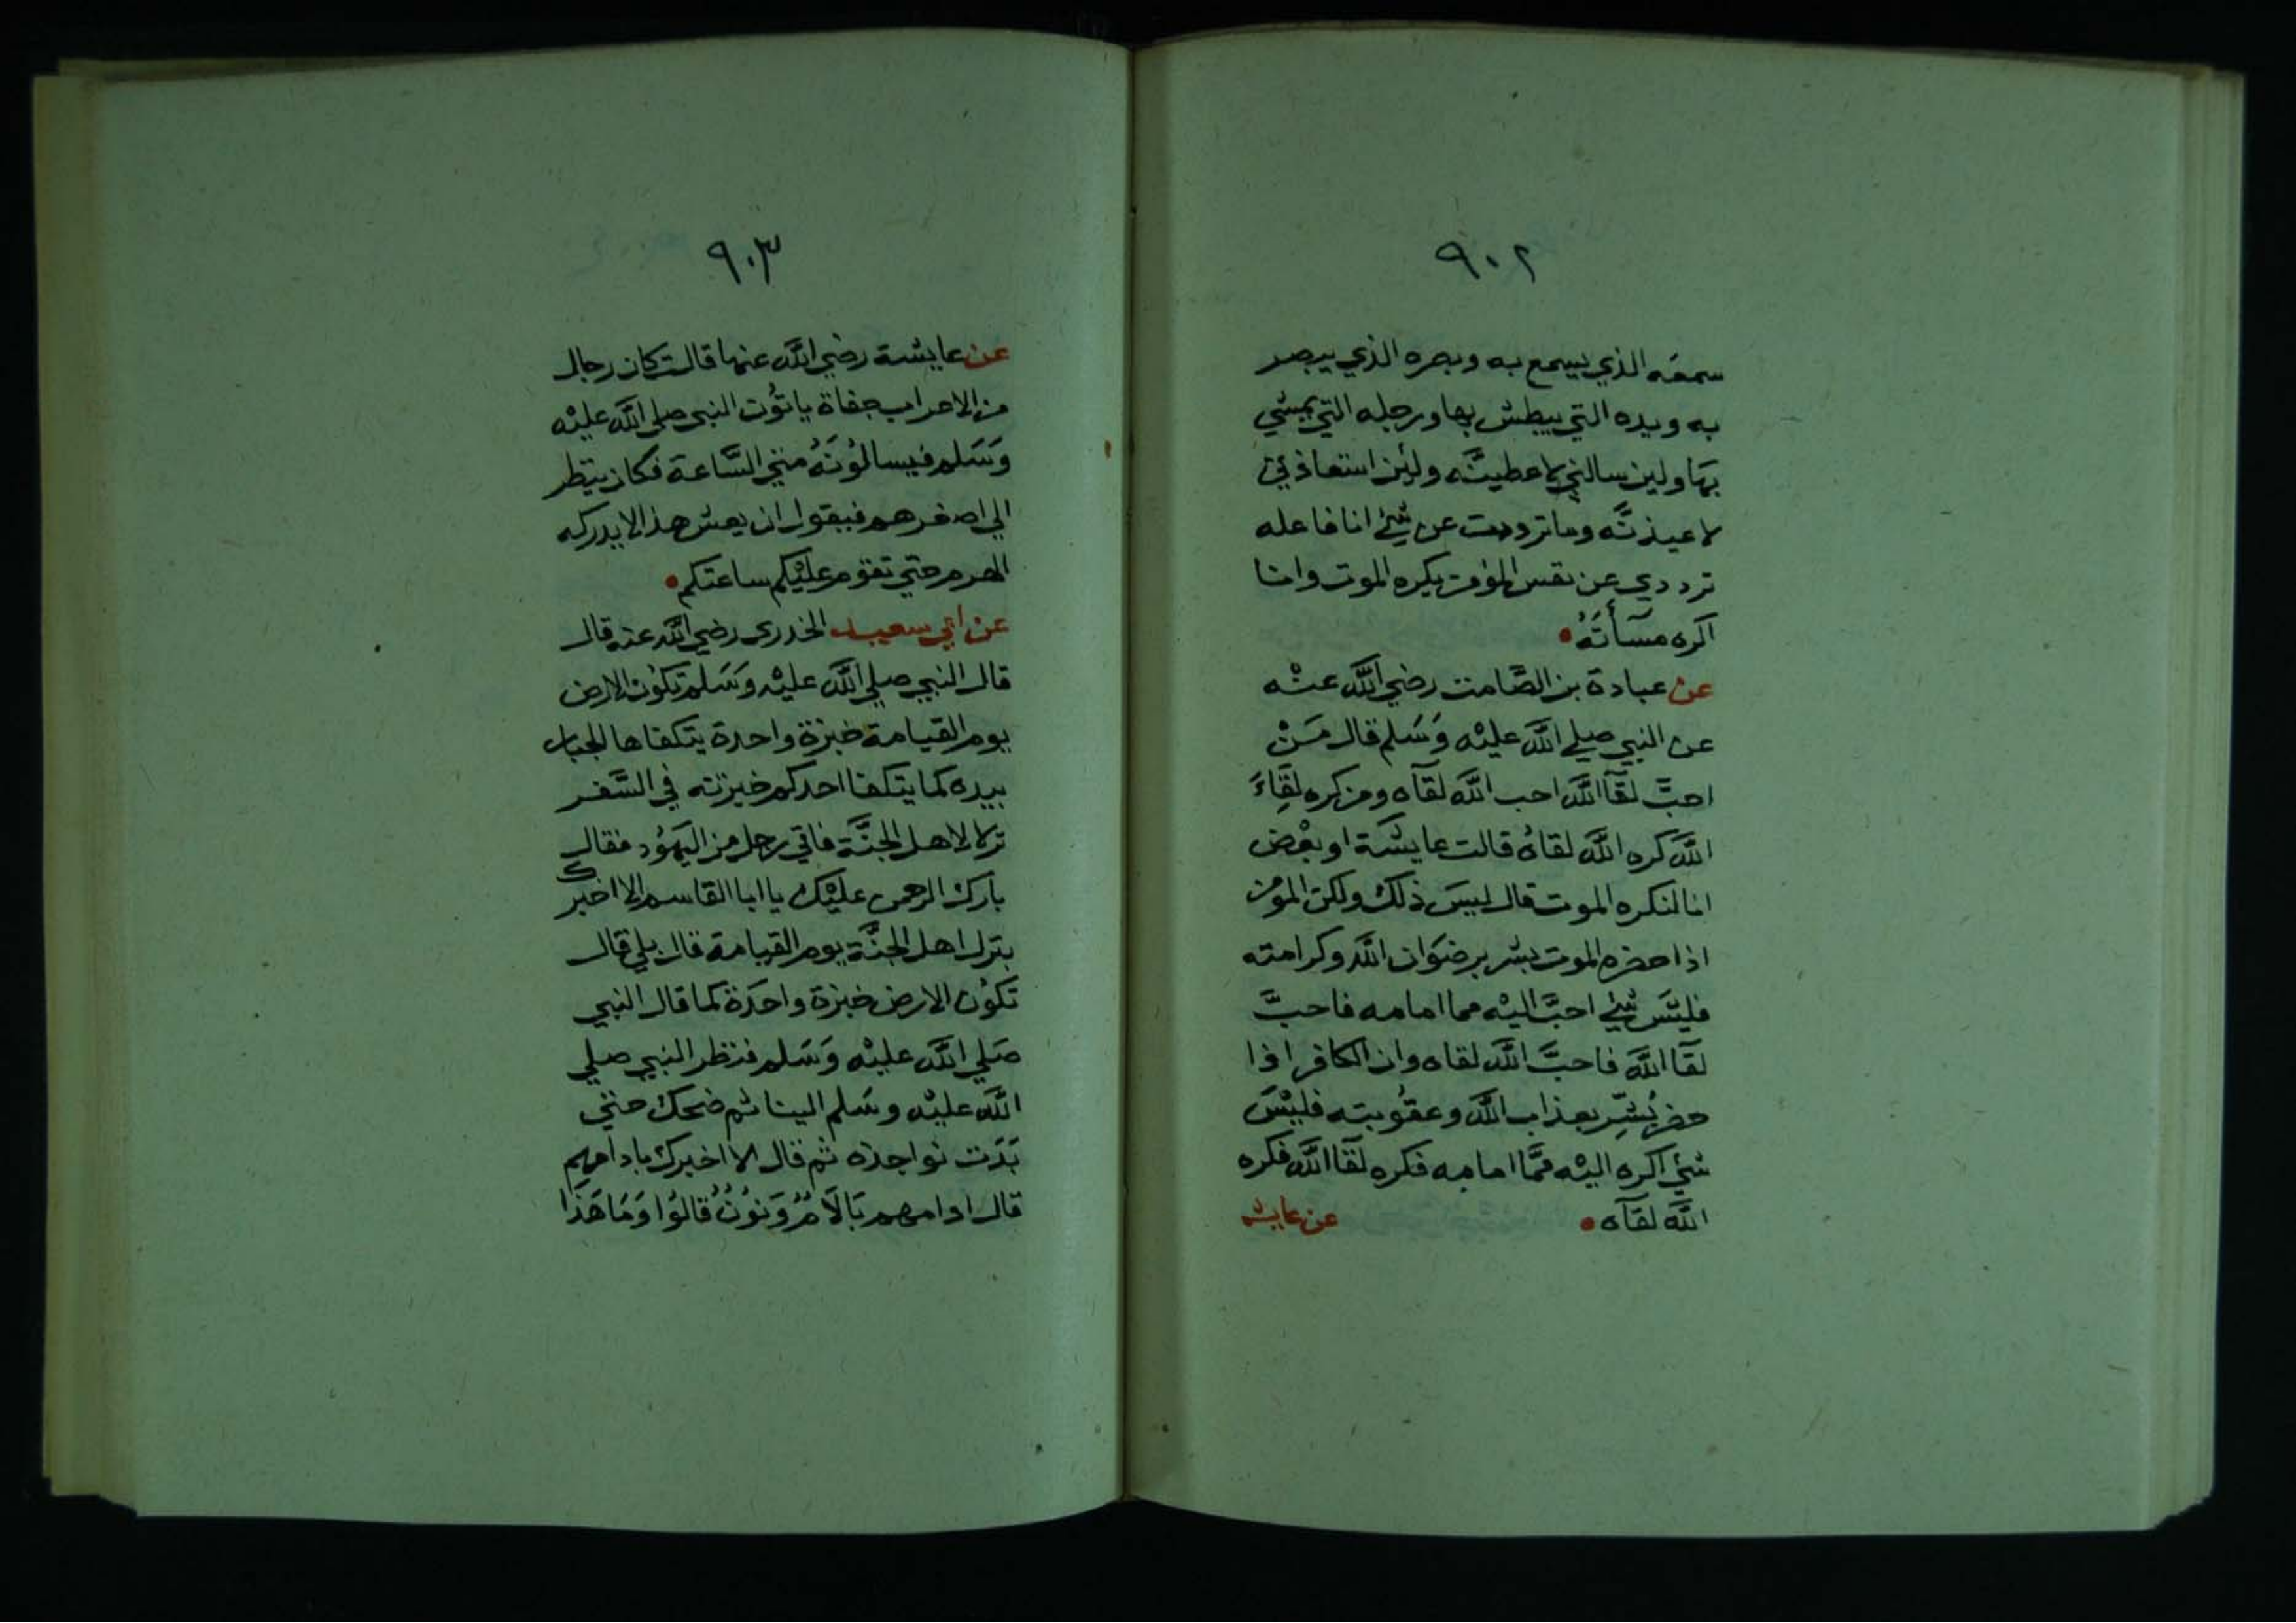 ٩٠٢
سمعه الذي يسمع به وبصره الذي يبصر
به ويده التي يبطش بها ورجله التي يمشي
بها ولين سالني لاعطينه ولئن استعاذني
لاعيذنَّه وما ترددت عن شئ انا فاعله
ترددي عن نفس المؤمن يكره الموت وانا
اكره مسآأتَهُ
عن عبادة بن الصَّامت رضي اللَّه عنْه
عن النبي صلي اللَّه عليْه وَسَلم قال مَنْ
احبَّ لقآ اللَّه احب اللَّه لقآه ومن كره لقَاِءَ
اللَّه كره اللَّه لقاهُ قالت عايشَة او بعْض
انا لنكره الموت قال ليسَ ذلك ولكن المؤمن
اذا حضره الموت بشر برضوَان اللَّه وكرامته
فليسَ شئ احبَّ اليْه مما امامه فاحبَّ
لقآ اللَّه فاحبَّ اللَّه لقاه وان الكافر اذا
حضر بُشِّر بعذاب اللَّه وعقُوبته فليْسَ
شئ اكره اليْه ممَّا امامه فكره لقآ اللَّه فكره
اللَّه لقآه
عن عايشه
٩٠٣
عن عايشة رضي اللَّه عنها قالت كان رجال
من الاعراب جفاة ياتُون النبي صلي اللَّه عليْه
وَسَلم فيسالوُنَهُ متي السَّاعة فكان ينظر
الي اصغرهم فيقول ان يعش هذا لا يدركه
الهرم حتي تقوم عليْكم ساعتكم
عن ابي سعيد الخدري رضي اللَّه عنه قال
قال النبي صلي اللَّه عليْه وَسَلم تكوُن الارض
يوم القيامة خبزة واحدة يتكفاها الجبار
بيده كما يتكفا احدكم خبزته في السَّفر
نزلا لاهل الجنَّة فاتي رجل من اليهُود فقال
بارك الرحمن عليْك يا ابا القاسم الا اخبرك
بنزل اهل الجنَّة يوم القيامة قال بلي قال
تكوُن الارض خبزة واحدَة كما قال النبي
صَلي اللَّه عليْه وَسَلم فنظر النبي صلي
اللَّه عليْه وسَلم الينا ثم ضحك حتي
بَدَت نواجذه ثم قال الا اخبرك بادامهم
قال ادامهم بَالَامُ وَنوُنٌ قالوُا وَمَا هَذَا